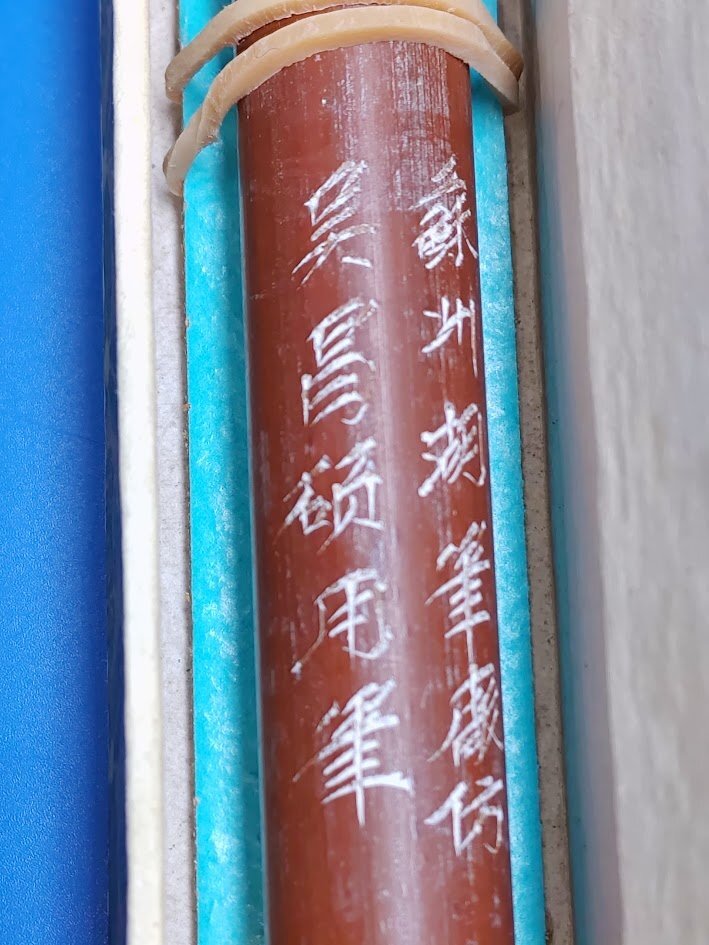 蘇州湖筆廠仿
吳昌碩用筆